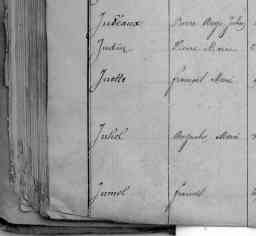 Judéaux Pierre Ange Jules
Judin Pierre Marie
Juette François Marie
Juhel Auguste Marie
Jumel François